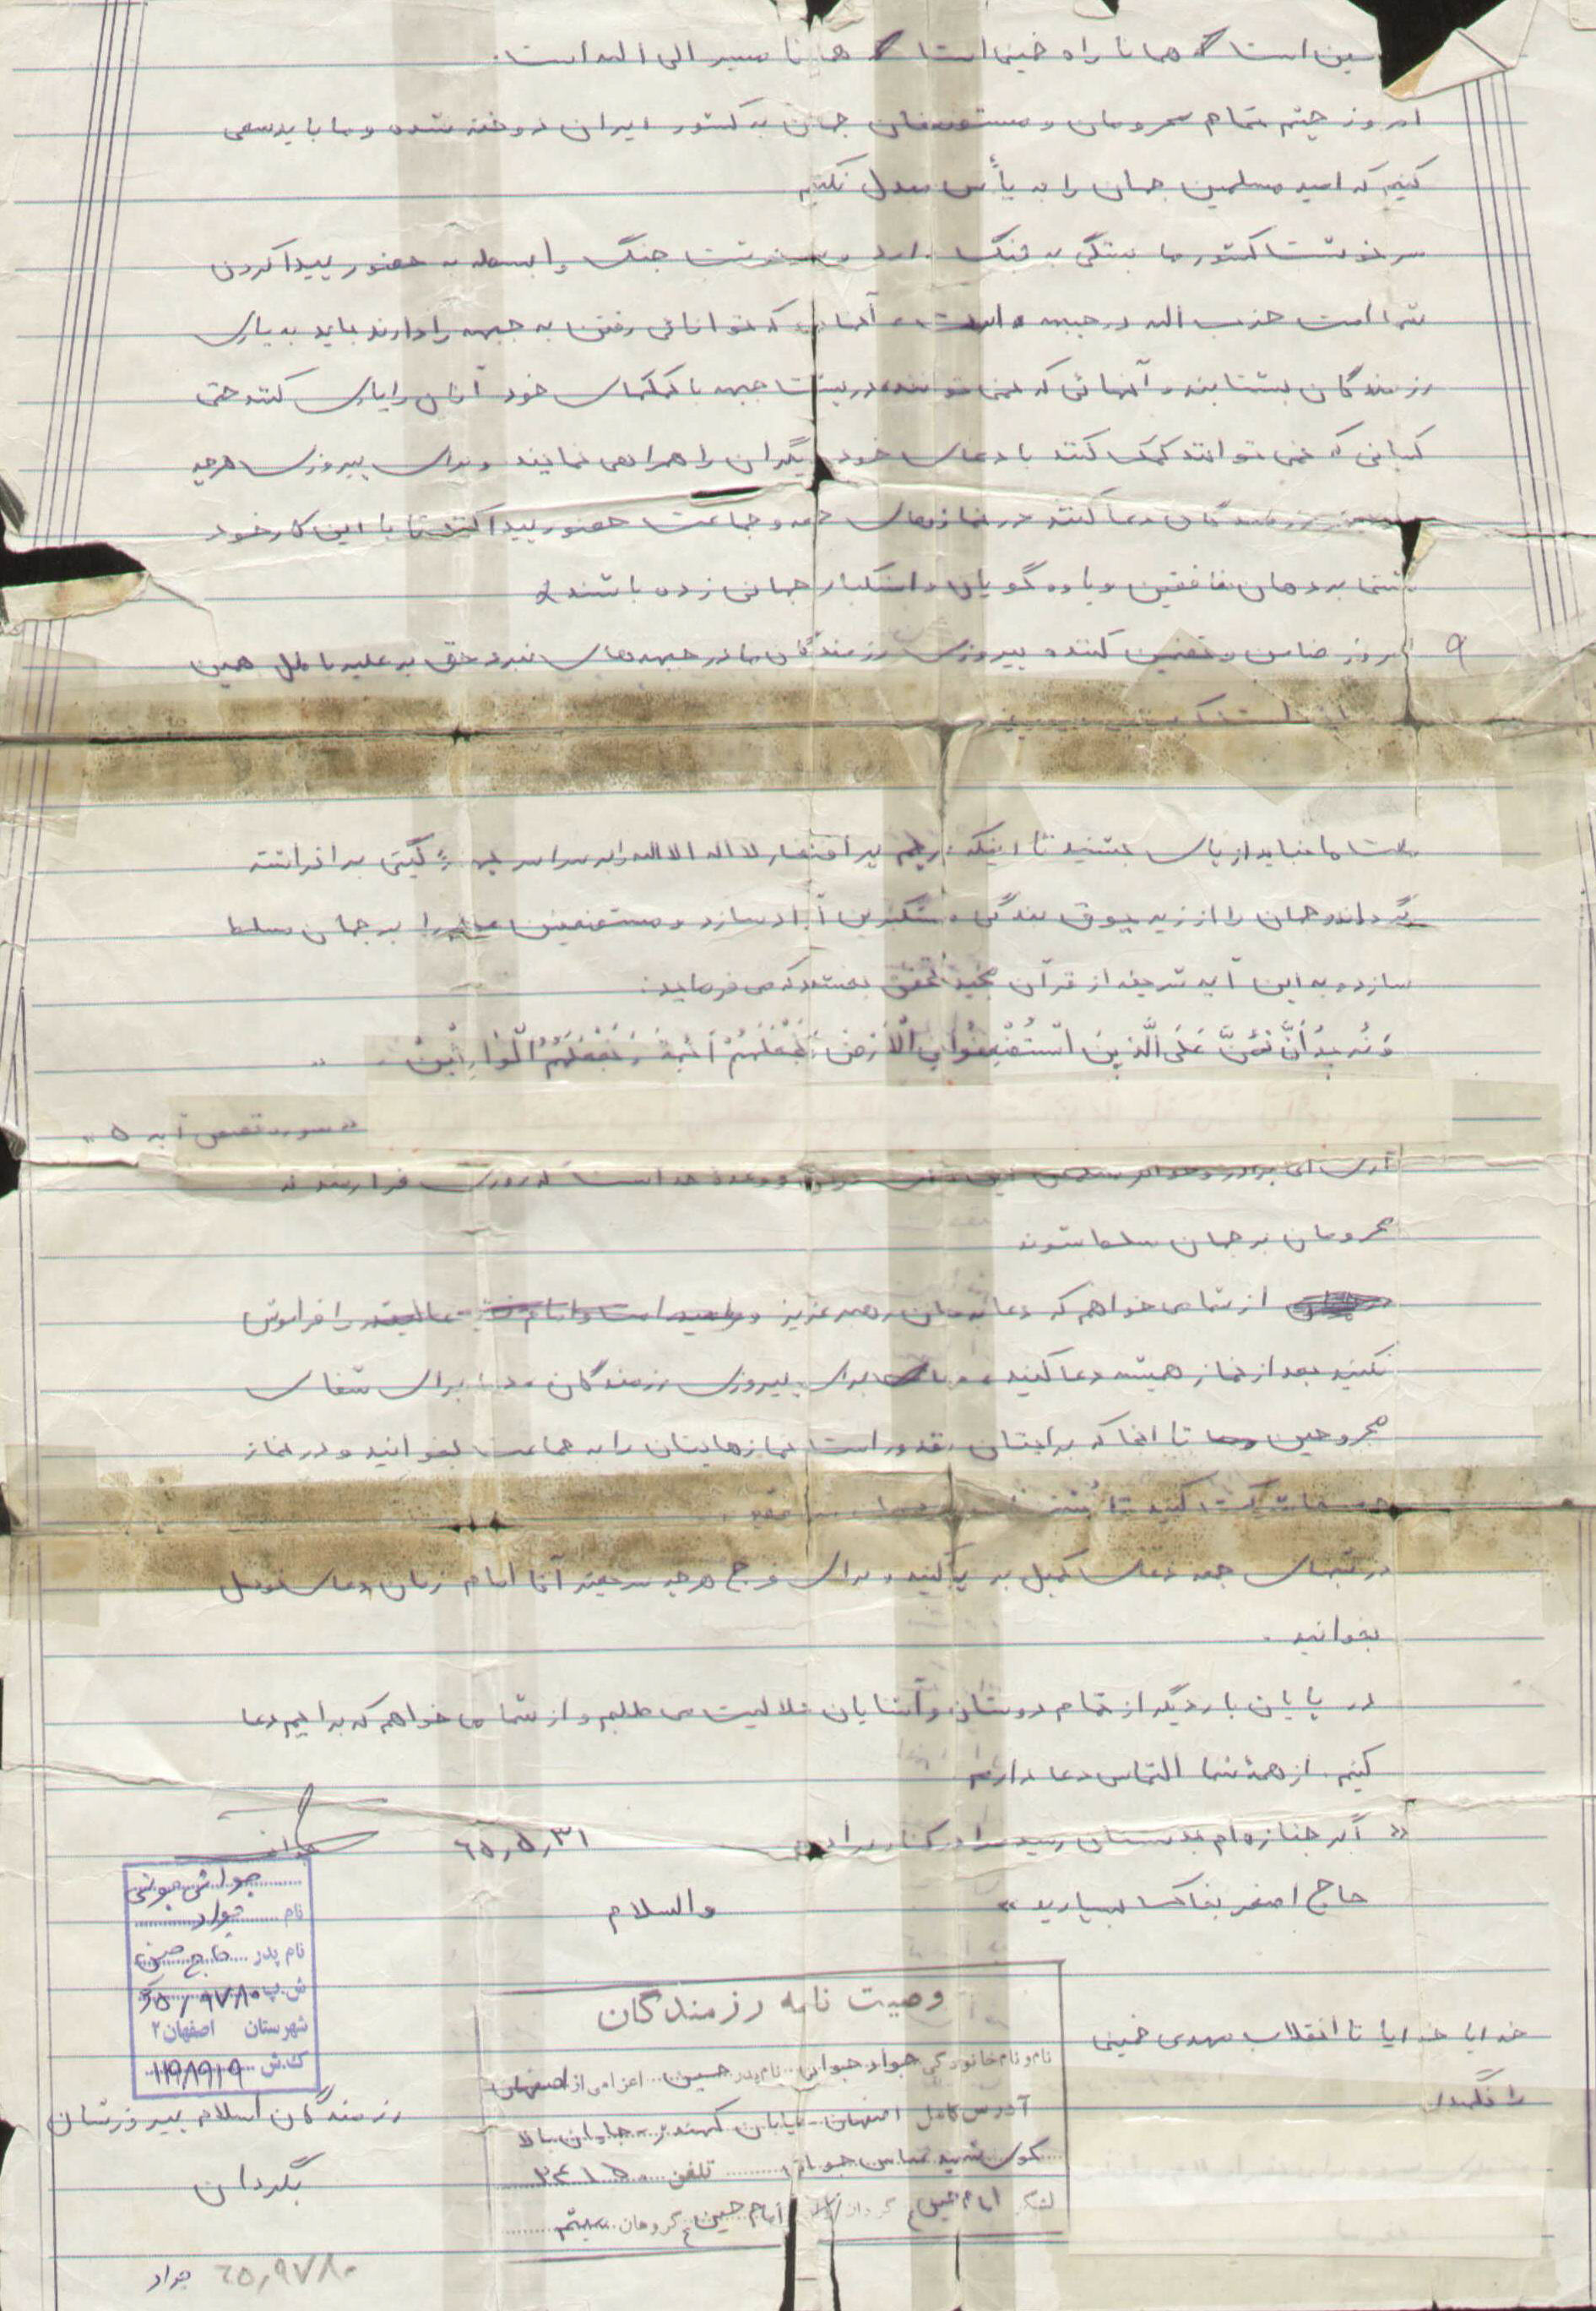 است همانا راه خمینی است همانا مسیر الی الله است.
امروز چشم تمام محرومان و مستضعفان جهان به کشور ایران دوخته شده و ما باید سعی
کنیم که امید مسلمین جهان را به یأس مبدل نکنیم
سرنوشت کشور ما بستگی به جنگ دارد و سرنوشت جنگ وابسطه به حضور پیدا کردن
شما امت حزب الله در جبهه است آنهائی که توانائی رفتن به جبهه را دارند باید به یاری
رزمندگان بشتابند و آنهائی که نمی توانند در پشت جبهه با کمکهای خود آنان را یاری کنند حتی
کسانی که نمی توانند کمک کنند با دعای خود دیگران را همراهی نمایند و برای پیروزی هرچه
رزمندگان دعا کنند در نمازهای جمعه و جماعت حضور پیدا کنند تا با این کار خود
مشتی بر دهان منافقین و یاوه گویان و استکبار جهانی زده باشند
۹ امروز ضامن و تضمین کننده پیروزی رزمندگان ما در جبهه های نبرد حق بر علیه باطل همین
ملت ما نباید از پای بنشیند تا اینکه پرچم پر افتخار لا اله الا الله را بر سراسر گیتی بر افراشته
گرداند و جهان را از زیر یوق بندگی مستکبرین آزاد سازد و مستضعفین را بر جهان مسلط
سازد و به این آیه شریفه از قرآن مجید تحقق بخشد که می فرماید:
وَ نُریدُ أَنْ نَمُنَّ عَلَی الَّذینَ اسْتُضْعِفُوا فِی الْأَرْضِ وَ نَجْعَلَهُمْ أَئِمَّةً وَ نَجْعَلَهُمُ الْوارِثینَ
«سوره قصص آیه ۵»
آری ای برادر و خواهر وعده خدا است که روزی
محرومان بر جهان مسلط شوند
از شما می خواهم که دعا به جان رهبر عزیز را فراموش
نکنید بعد از نماز همیشه دعا کنید برای پیروزی رزمندگان دعا برای شفای
مجروحین تا آنجا که برایتان مقدور است نمازهایتان را به جماعت بخوانید و در نماز
شرکت کنید تا
در شبهای جمعه دعای کمیل بر پا کنید و برای فرج هرچه سریعتر آقا امام زمان دعای توسل
بخوانید.
در پایان بار دیگر از تمام دوستان و آشنایان حلالیت می طلبم و از شما می خواهم که برایم دعا
کنیم. از همهٔ شما التماس دعا دارم
« اگر جنازه ام بدستتان رسید مرا در کنار برادرم ۶۵٫۵٫۳۱
حاج اصغر بخاک بسپارید » والسلام
جوانی جونی
نام جواد
نام پدر حاج حسین
ش.پ ۶۵/۹۷۸۰
شهرستان اصفهان ۲
ک.ش
وصیت نامه رزمندگان
نام و نام خانوادگی جواد جوانی نام پدر حسین اعزامی از اصفهان
آدرس کامل اصفهان - خیابان کهندژ - جاوان بالا
کوی شهید عباس جوانی تلفن
لشگر امام حسین ع گردان امام حسین ع گروهان
خدایا خدایا تا انقلاب مهدی خمینی
را نگهدار
رزمندگان اسلام پیروزشان
بگردان
۶۵٫۹۷۸۰ جواد